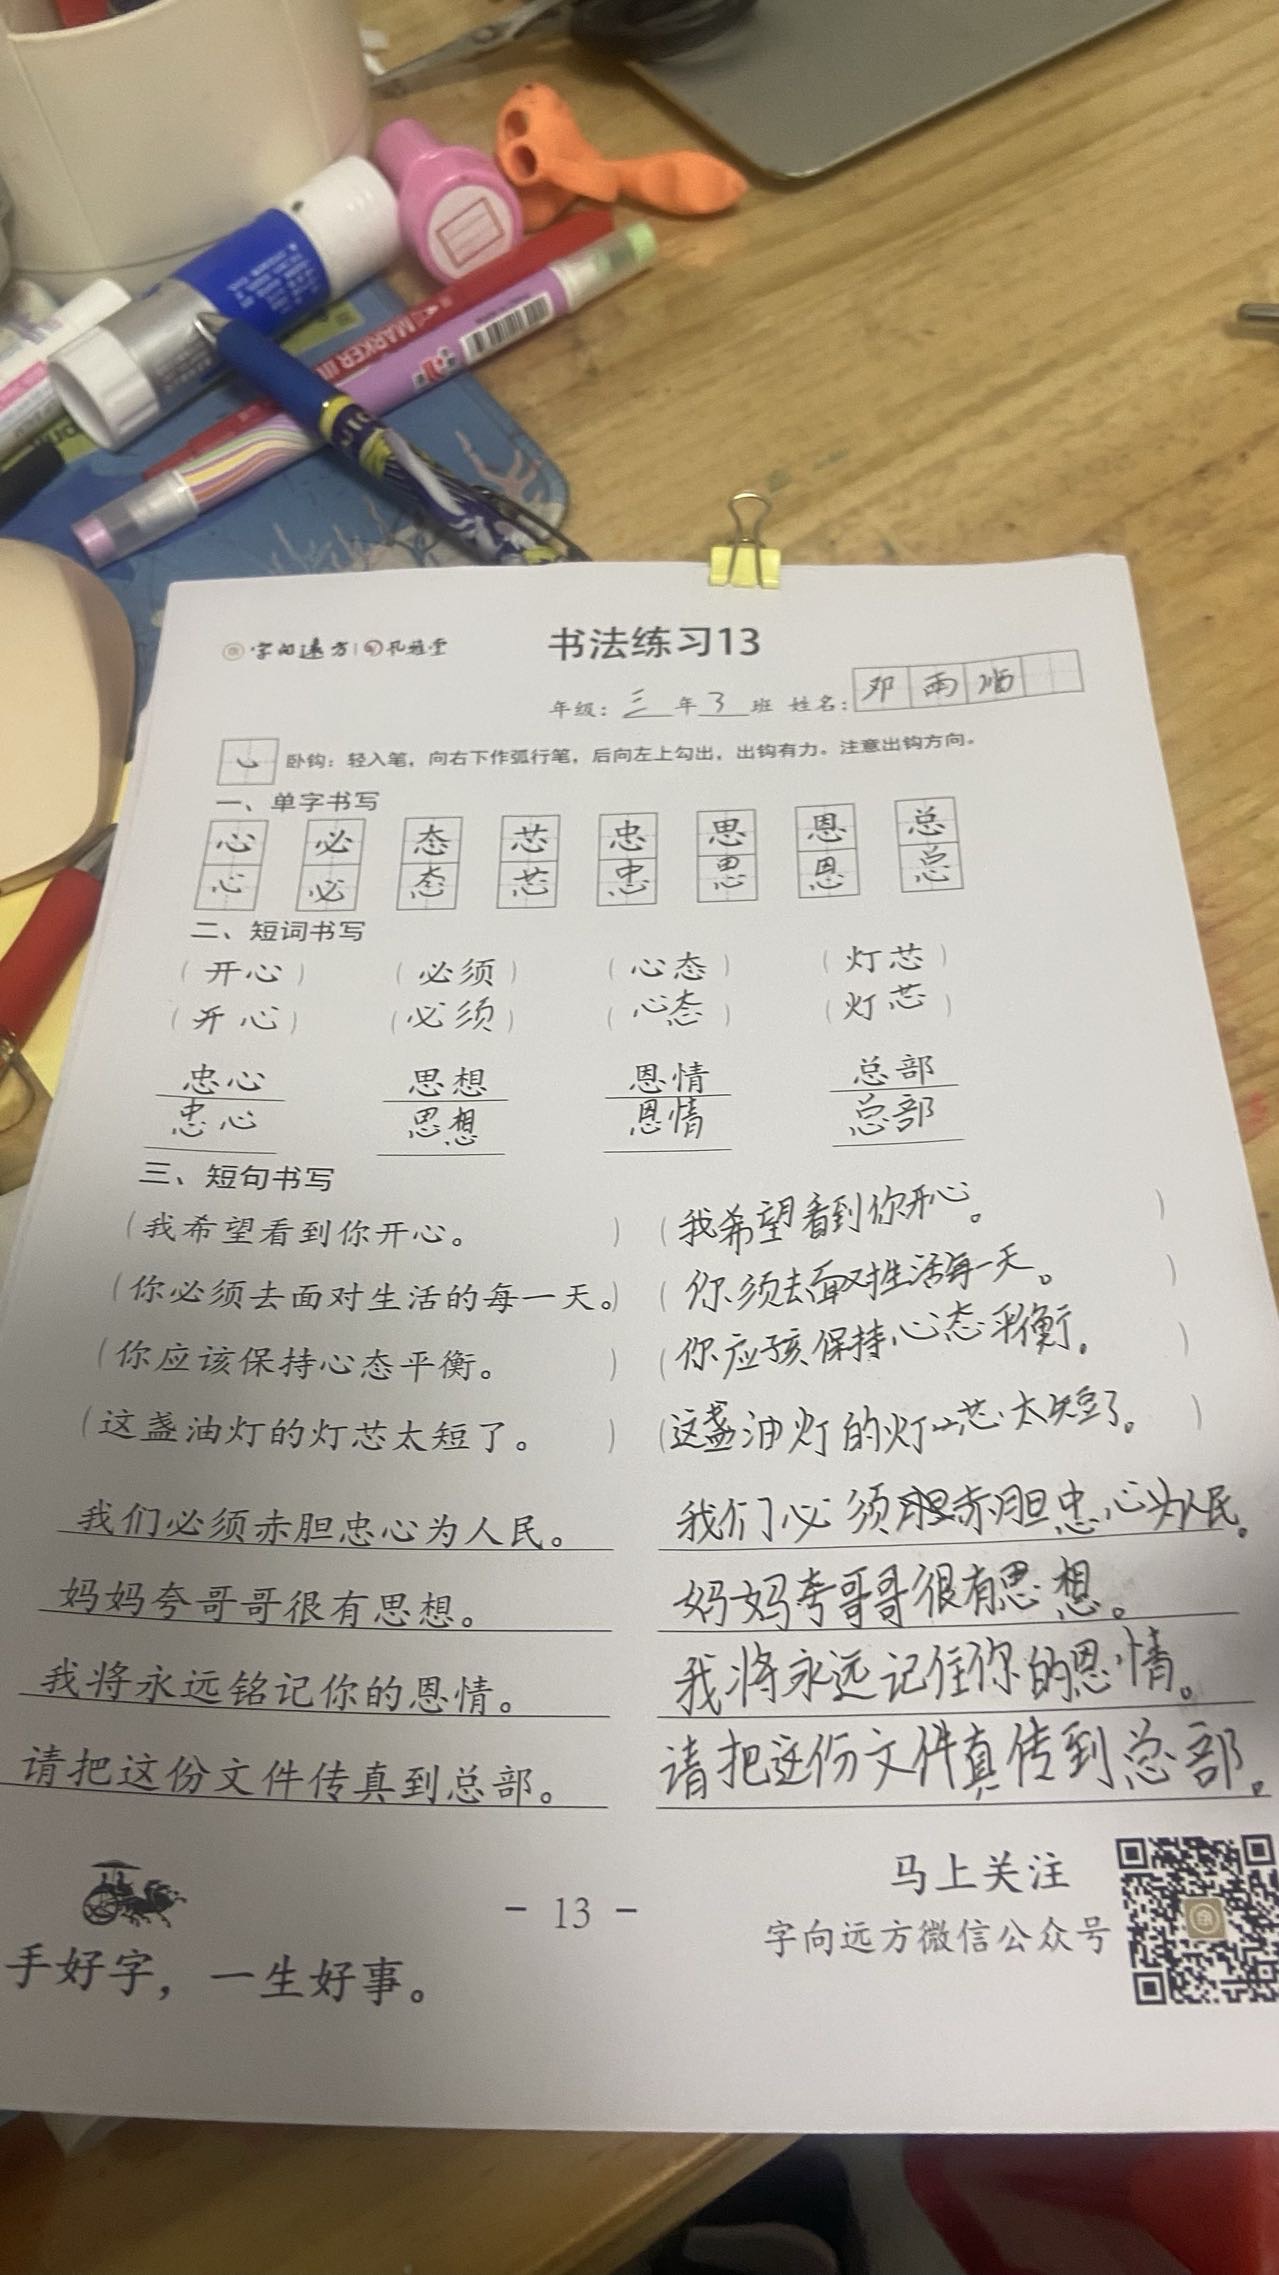 MARKER
字向远方 | 孔雅堂
书法练习13
年级：三年3班 姓名：邓雨顺
卧钩：轻入笔，向右下作弧行笔，后向左上勾出，出钩有力。注意出钩方向。
一、单字书写
心 必 态 芯 忠 思 恩 总
心 必 态 芯 忠 思 恩 总
二、短词书写
（开心） （必须） （心态） （灯芯）
（开心） （必须） （心态） （灯芯）
忠心 思想 恩情 总部
忠心 思想 恩情 总部
三、短句书写
（我希望看到你开心。） （我希望看到你开心。）
（你必须去面对生活的每一天。） （你须去面对生活每一天。）
（你应该保持心态平衡。） （你应该保持心态平衡。）
（这盏油灯的灯芯太短了。） （这盏油灯的灯芯太短了。）
我们必须赤胆忠心为人民。 我们必须赤胆忠心为人民。
妈妈夸哥哥很有思想。 妈妈夸哥哥很有思想。
我将永远铭记你的恩情。 我将永远记住你的恩情。
请把这份文件传真到总部。 请把这份文件真传到总部。
手好字，一生好事。
- 13 -
马上关注
字向远方微信公众号